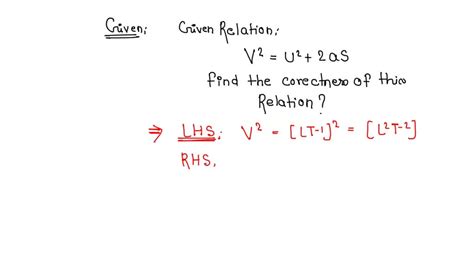 Given: Given Relation:
V² = U² + 2aS
find the corectness of this
Relation?
⇒ LHS: V² = [LT-1]² = [L²T-2]
RHS,